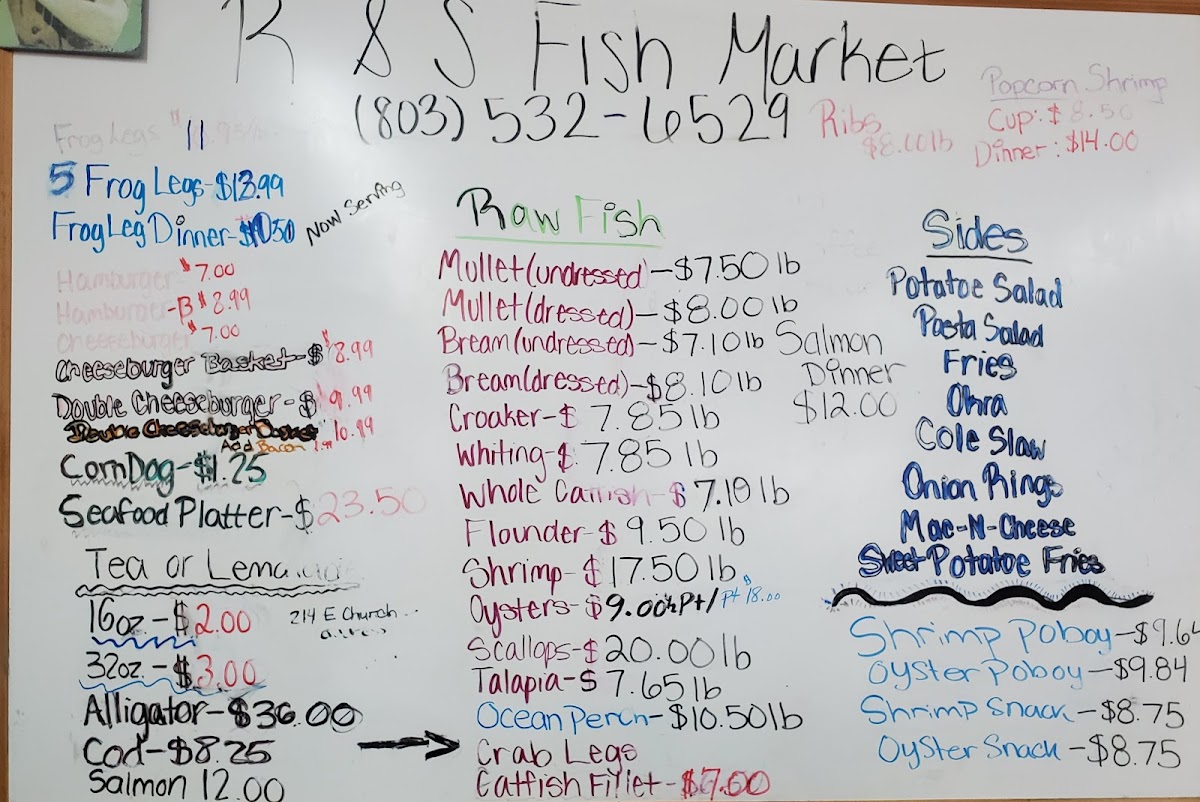 R & S Fish Market
(803) 532-6529
Ribs
$8.00lb
Popcorn Shrimp
Cup: $8.50
Dinner: $14.00
Frog Legs $11.95/
5 Frog Legs-$13.99
Frog Leg Dinner-$1050
Now Serving
Hamburger $7.00
Hamburger-B $8.99
Cheeseburger $7.00
Cheeseburger Basket-$8.99
Double Cheeseburger-$9.99
Double Cheeseburger Basket 10.99
Add Bacon
Corn Dog-$1.25
Seafood Platter-$23.50
Tea or Lemonade
16oz.-$2.00
32oz.-$3.00
214 E Church
Alligator-$36.00
Cod-$8.25
Salmon 12.00
Raw Fish
Mullet(undressed)-$7.50 lb
Mullet(dressed)-$8.00 lb
Bream(undressed)-$7.10 lb
Bream(dressed)-$8.10 lb
Croaker-$ 7.85 lb
Whiting-$ 7.85 lb
Whole Catfish-$ 7.10 lb
Flounder-$ 9.50 lb
Shrimp-$17.50 lb
Oysters-$9.00½Pt/Pt $18.00
Scallops-$20.00 lb
Talapia-$ 7.65 lb
Ocean Perch-$10.50 lb
Crab Legs
Catfish Fillet-$7.00
Salmon
Dinner
$12.00
Sides
Potatoe Salad
Pasta Salad
Fries
Okra
Cole Slaw
Onion Rings
Mac-N-Cheese
Sweet Potatoe Fries
Shrimp Poboy-$9.64
Oyster Poboy-$9.84
Shrimp Snack-$8.75
Oyster Snack-$8.75